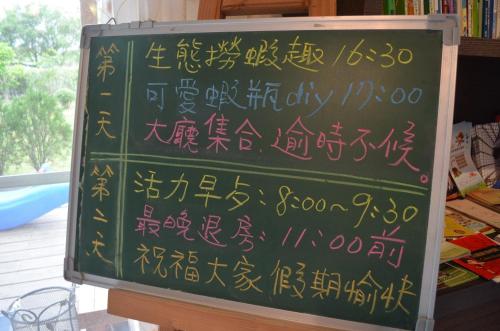 第一天
生態撈蝦趣 16:30
可愛蝦瓶diy 17:00
大廳集合.逾時不候。
第二天
活力早歺:8:00~9:30
最晚退房:11:00前
祝福大家 假期愉快